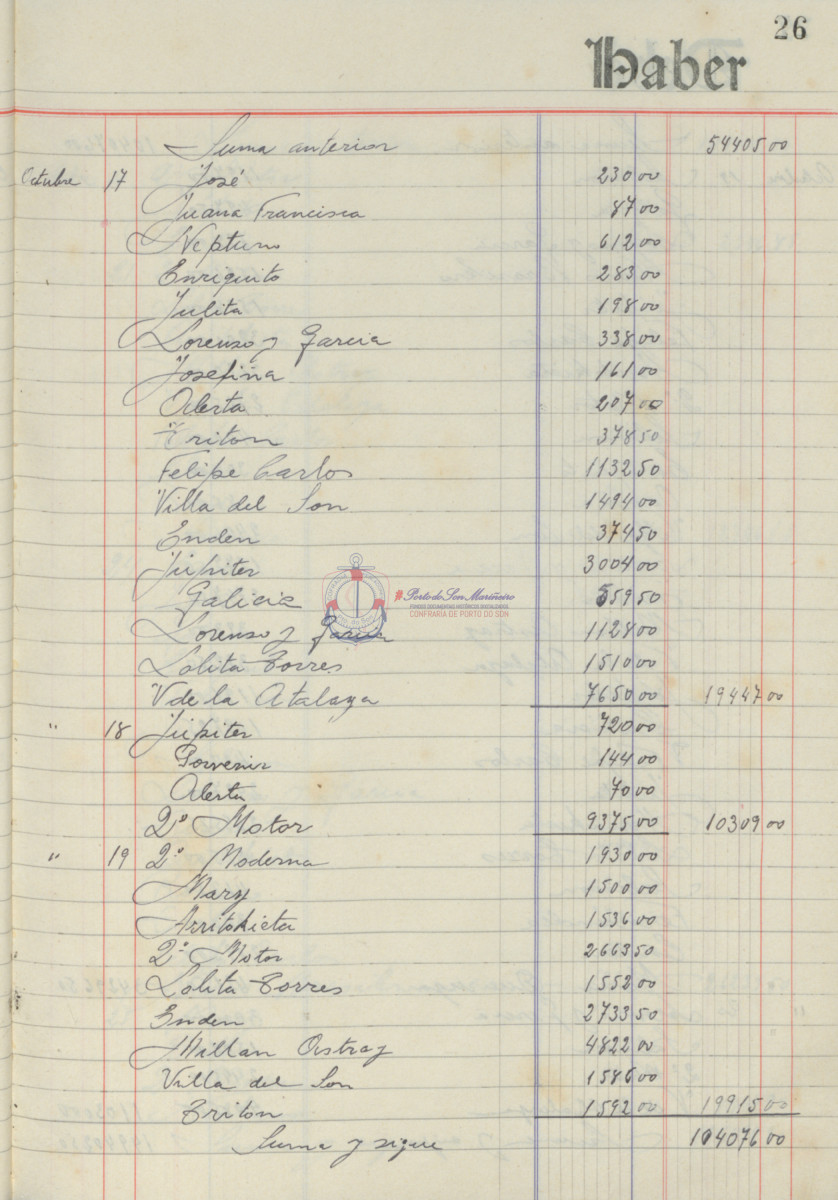 26
Haber
Suma anterior 54405 00
Octubre 17 José 230 00
Juana Francisca 87 00
Neptuno 612 00
Enriquito 283 00
Julita 198 00
Lorenzo y Garcia 338 00
Josefina 161 00
Alerta 207 00
Triton 378 50
Felipe Carlos 1132 50
Villa del Son 1494 00
Enden 374 50
Júpiter 3004 00
Galicia 559 50
#Porto do Son Mariñeiro
FONDOS DOCUMENTAIS HISTÓRICOS DIXITALIZADOS
CONFRARIA DE PORTO DO SON
Lorenzo y Garcia 1128 00
Lolita Torres 1510 00
V de la Atalaya 7650 00 19447 00
" 18 Júpiter 720 00
Porvenir 144 00
Alerta 70 00
2º Motor 9375 00 10309 00
" 19 2ª Moderna 1930 00
Mary 1500 00
Arritokieta 1536 00
2º Motor 2663 50
Lolita Torres 1552 00
Enden 2733 50
Millan Astray 4822 00
Villa del Son 1586 00
Triton 1592 00 19915 00
Suma y sigue 104076 00